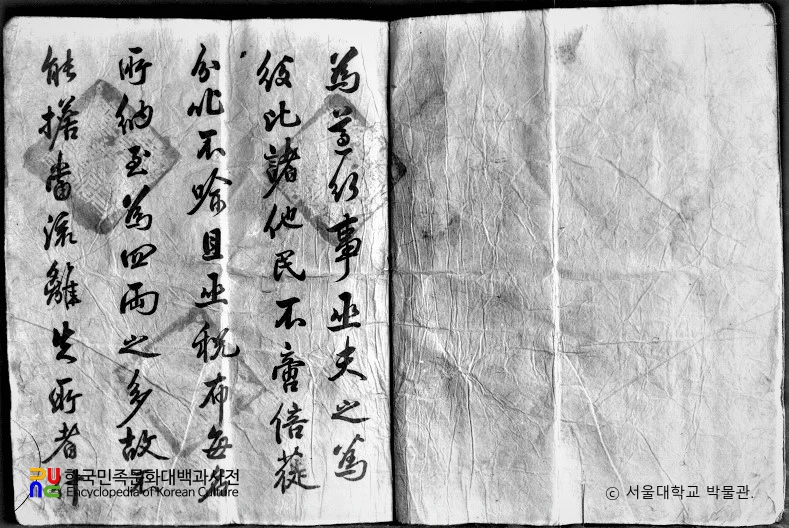 為遵行事巫夫之篤
役比諸他民不啻倍蓰
分叱不喩且巫稅布每名
所納至為四兩之多故不
能擔當流離失所者
한국민족문화대백과사전
Encyclopedia of Korean Culture
© 서울대학교 박물관.